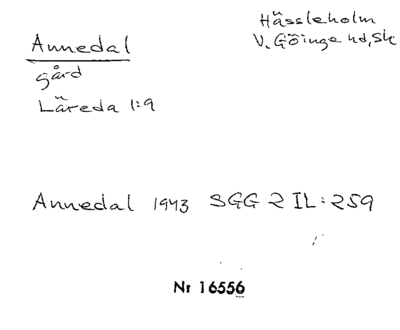 Annedal
gård
Läreda 1:9
Hässleholm
V. Göinge hd, Sk
Annedal 1943 SGG 2 IL:259
Nr 16556